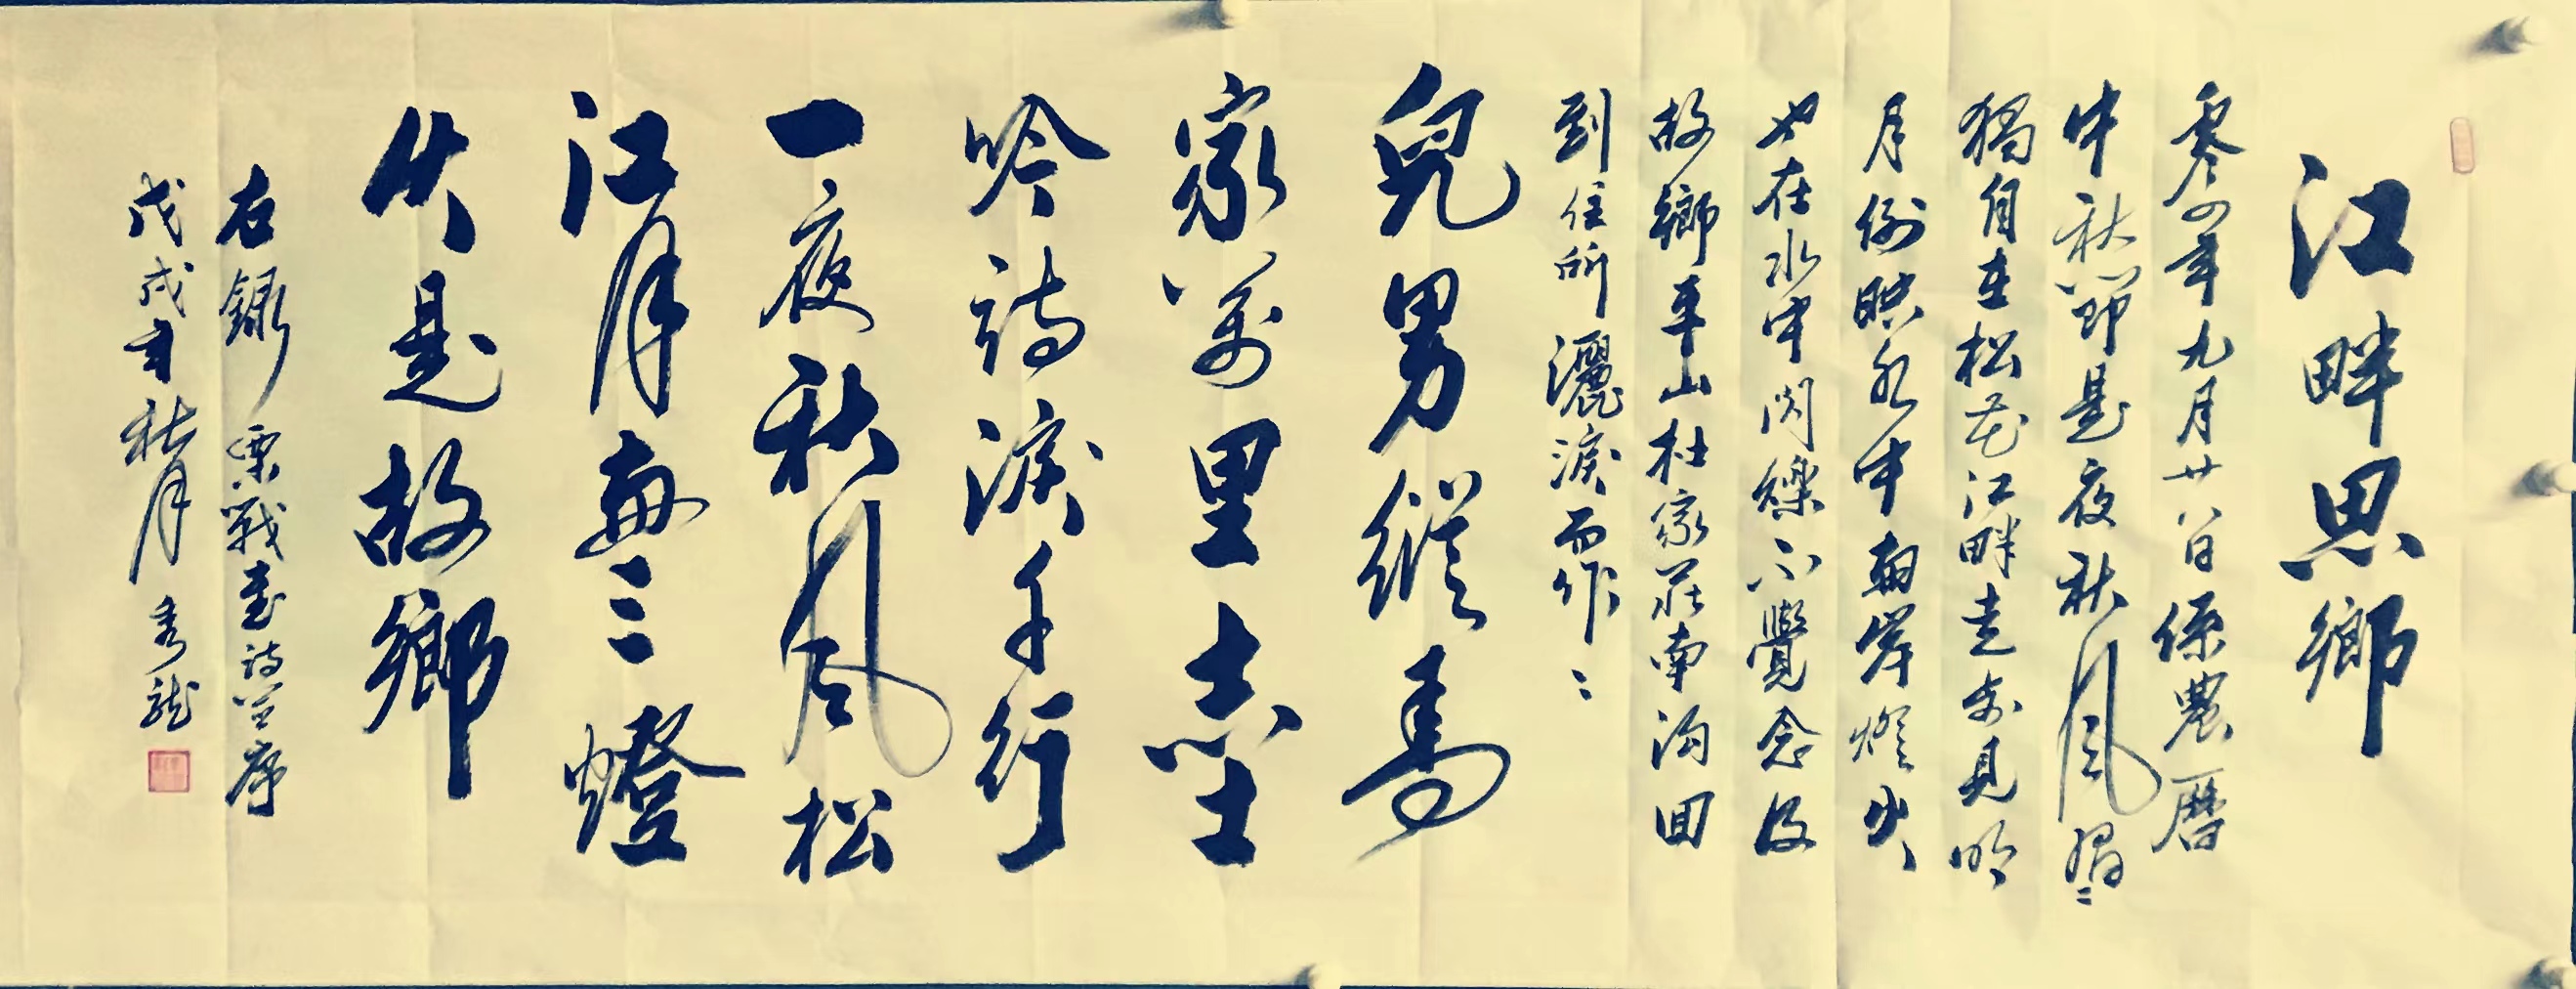 江畔思鄉
零四年九月廿八日係農曆
中秋節是夜秋風習習
獨自在松花江畔走去見明
月倒映水中兩岸燈火
也在水中閃爍不覺念及
故鄉車山杜家莊南溝回
到住所灑淚而作
兒男縱馬
家萬里志士
吟詩淚千行
一夜秋風松
江月無三燈
火是故鄉
右錄栗戰書詩並序
戊戌年秋月秀龍